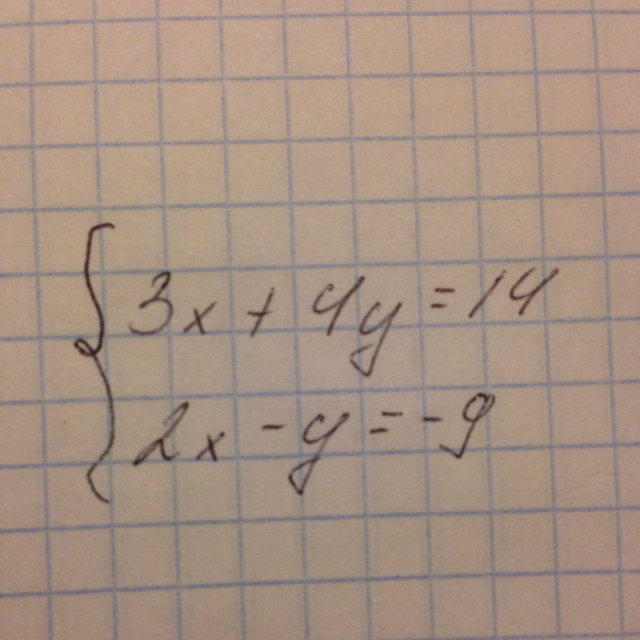 3x + 4y = 14
2x - y = -9